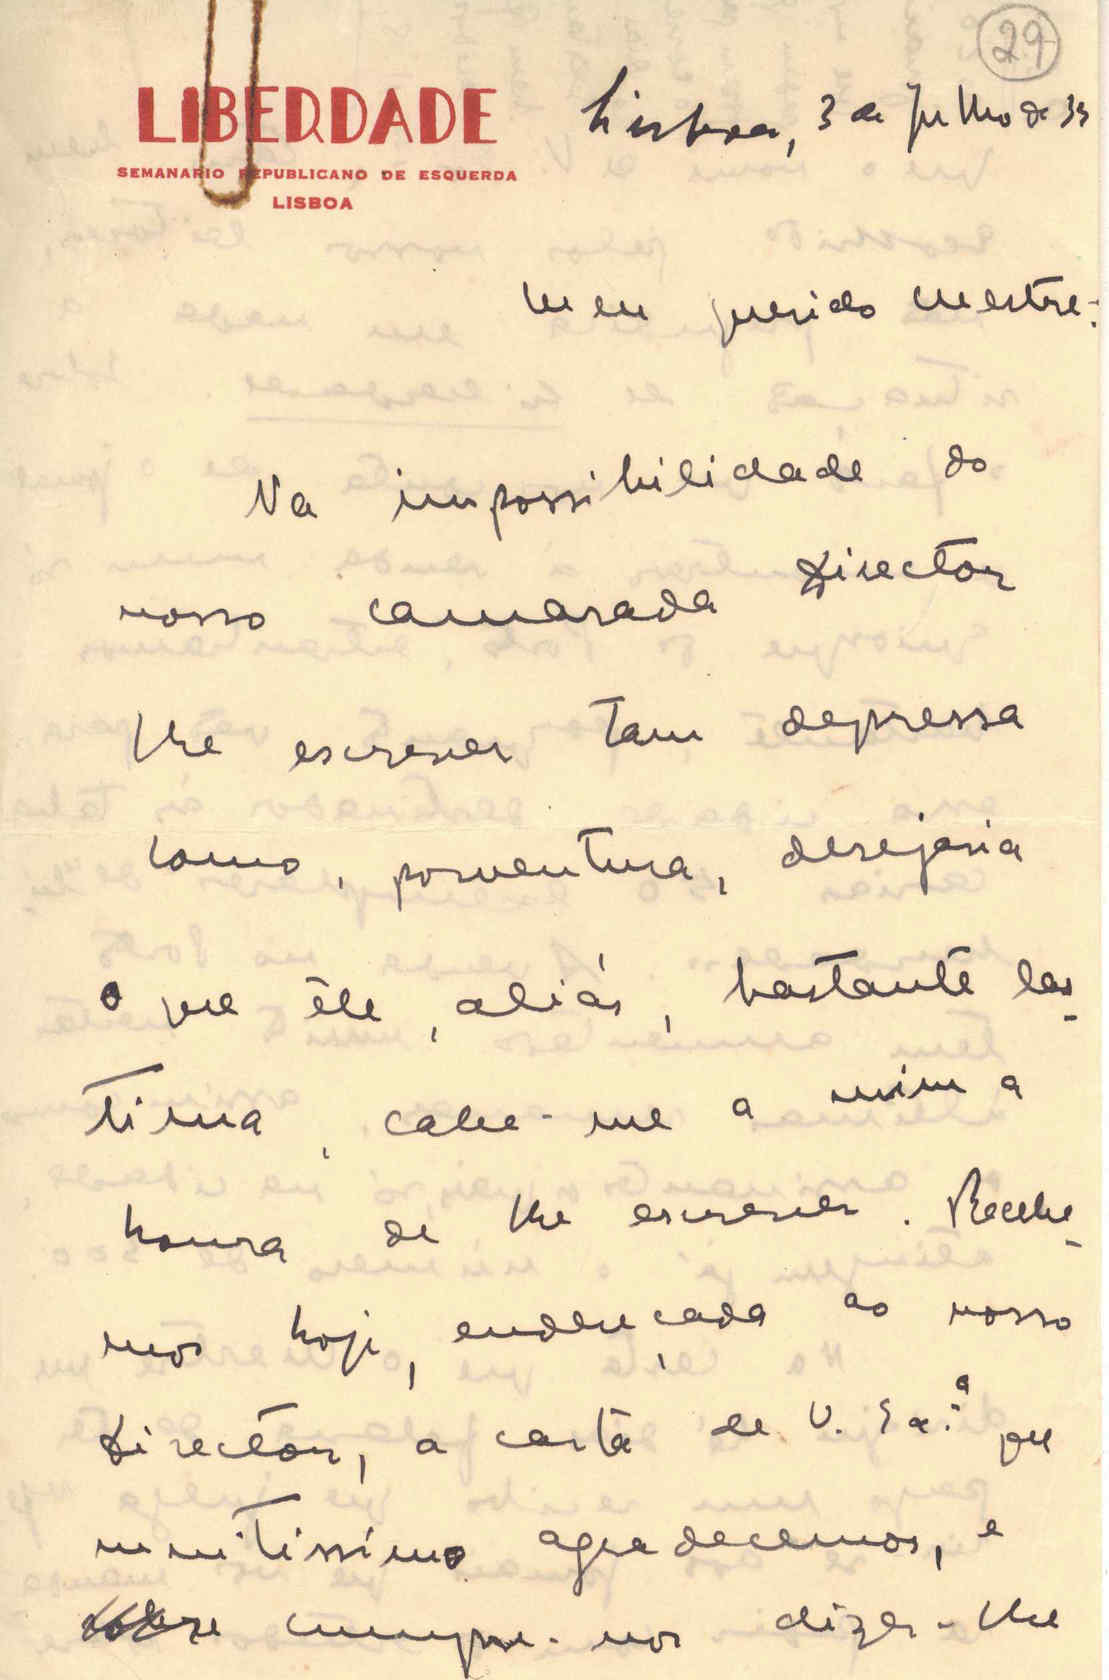 29
LIBERDADE
SEMANARIO REPUBLICANO DE ESQUERDA
LISBOA
Lisboa, 3 de Julho de 33
Meu querido Mestre:
Na impossibilidade do
nosso camarada Director
lhe escrever tam depressa
como, porventura, desejaria
o que êle, aliás, bastante las-
tima, cabe-me a mim a
honra de lhe escrever. Recebe-
mos hoje, endereçada ao nosso
Director, a carta de V. Ex.ª que
muitissimo agradecemos, e
cumpre-nos dizer-lhe